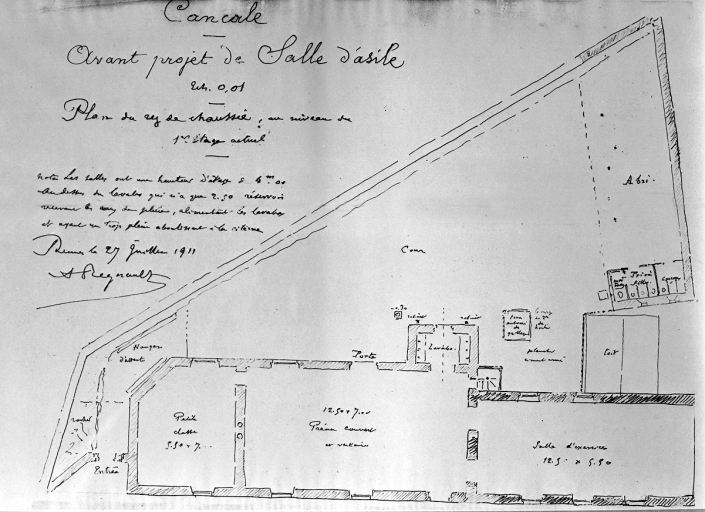 Cancale
Avant projet de Salle d'asile
Ech. 0,01
Plan du rez de chaussée, au niveau du
1er Etage actuel
nota Les salles ont une hauteur d'étage de 4m.00
Au dessus du lavabo qui n'a que 2.50 réservoir
recevant les eaux de pluie, alimentant les lavabos
et ayant un trop plein aboutissant à la citerne
Rennes le 27 Juillet 1911
A Regnault
Abri.
Cour
Privés
Lavabo
Porte
Toit
plancher
Hangar
d'attente
Petite
classe
5.50 x 7
12.50 x 7.00
Préau couvert
et vestiaire
Salle d'exercice
12.5 x 5.50
Entrée